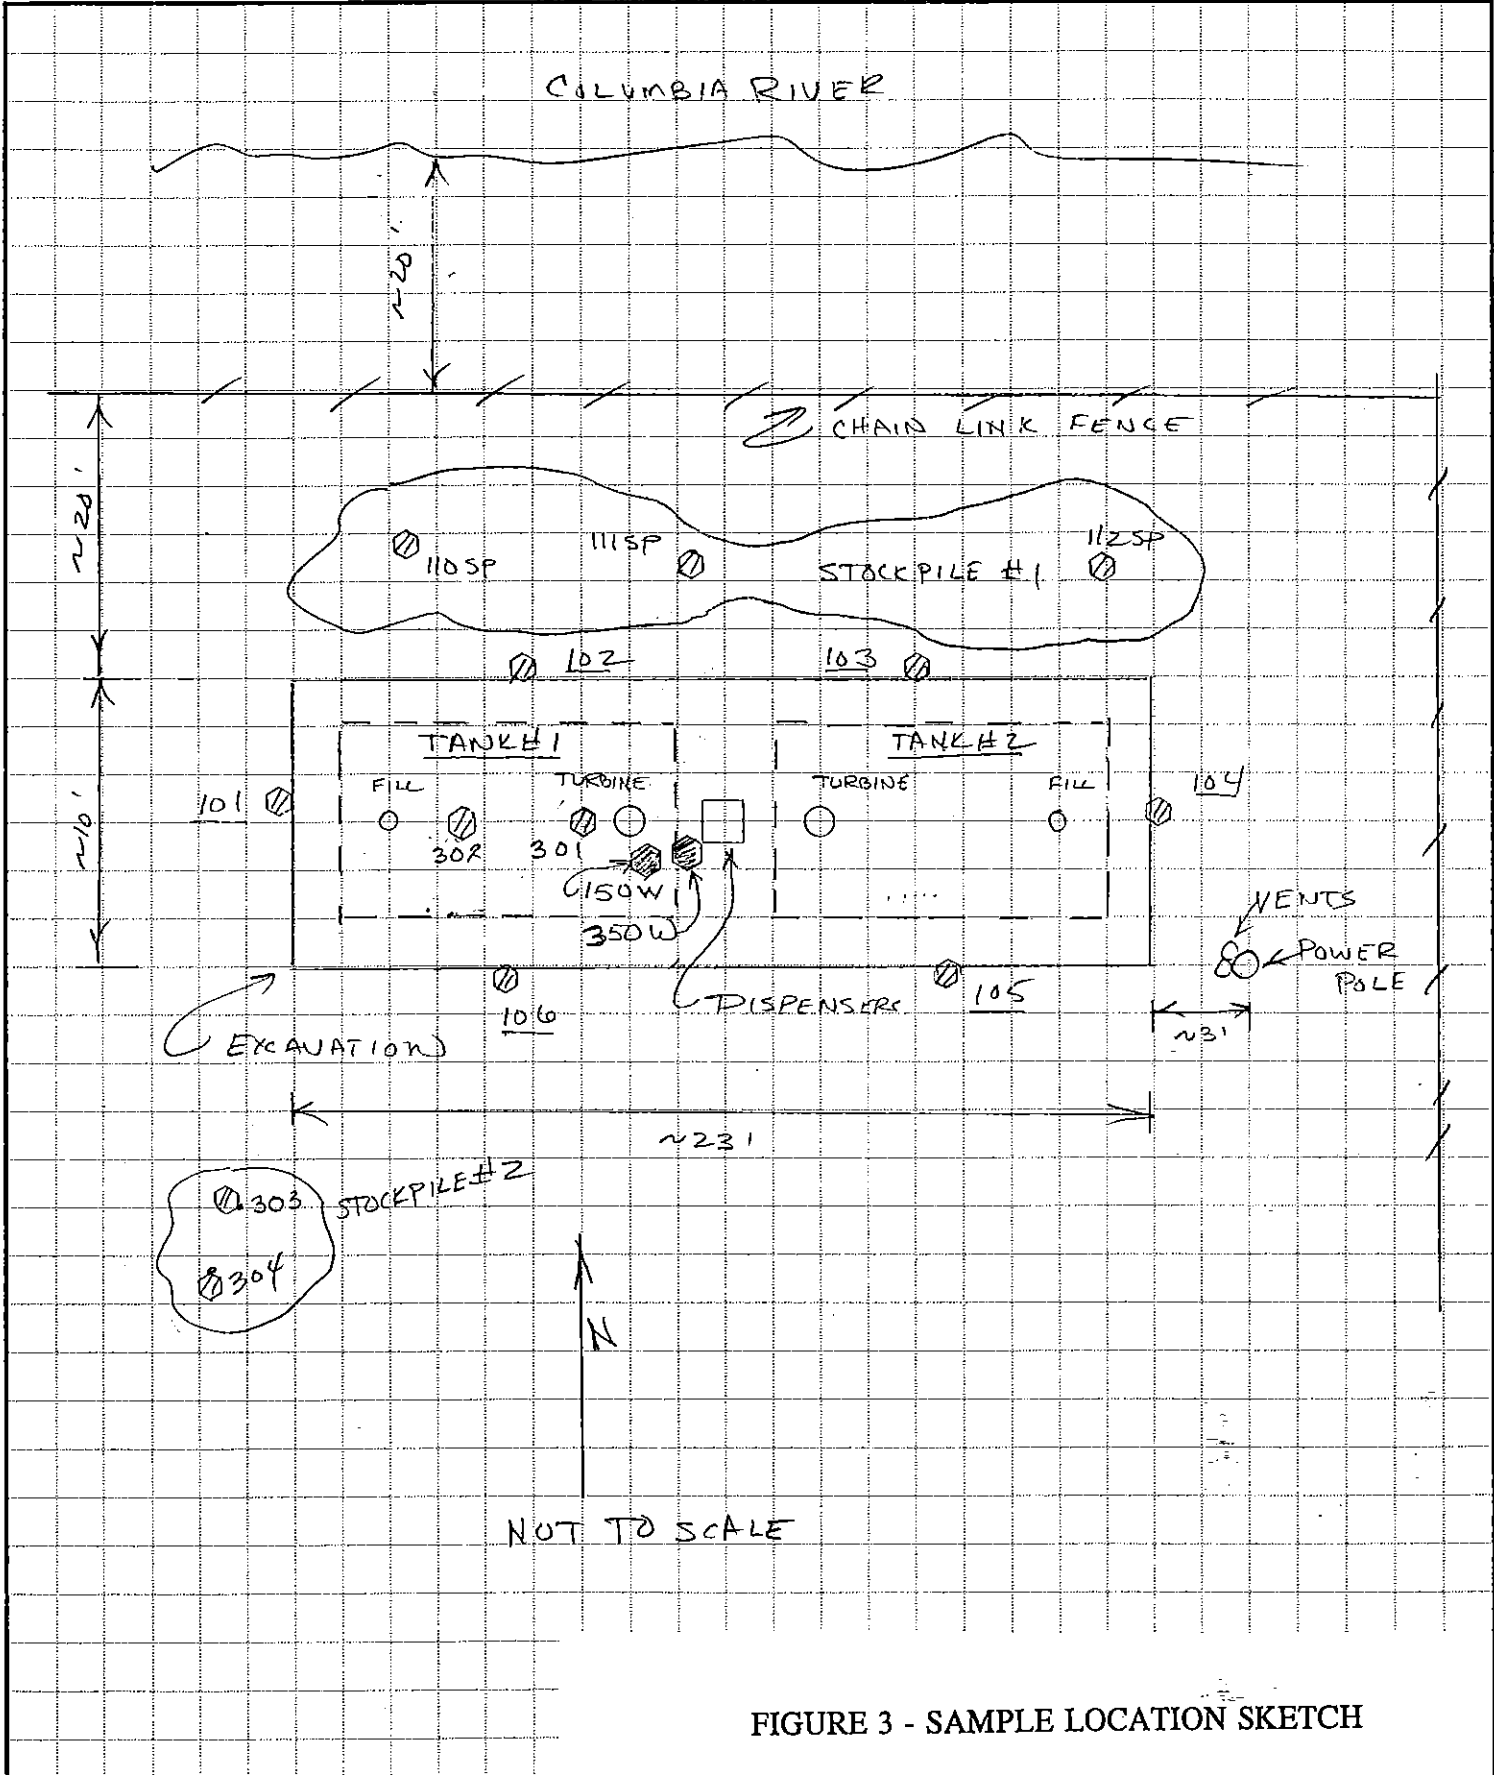 COLUMBIA RIVER
~20'
CHAIN LINK FENCE
~20'
110 SP
111 SP
STOCKPILE #1
112 SP
102
103
TANK #1
TANK #2
FILL
TURBINE
TURBINE
FILL
101
104
~10'
302
301
150W
350W
VENTS
POWER
POLE
106
DISPENSERS
105
~3'
EXCAVATION
~23'
303
STOCKPILE #2
304
N
NOT TO SCALE
FIGURE 3 - SAMPLE LOCATION SKETCH